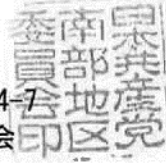 日本共産党
南部地区
委員会印
4-7
会